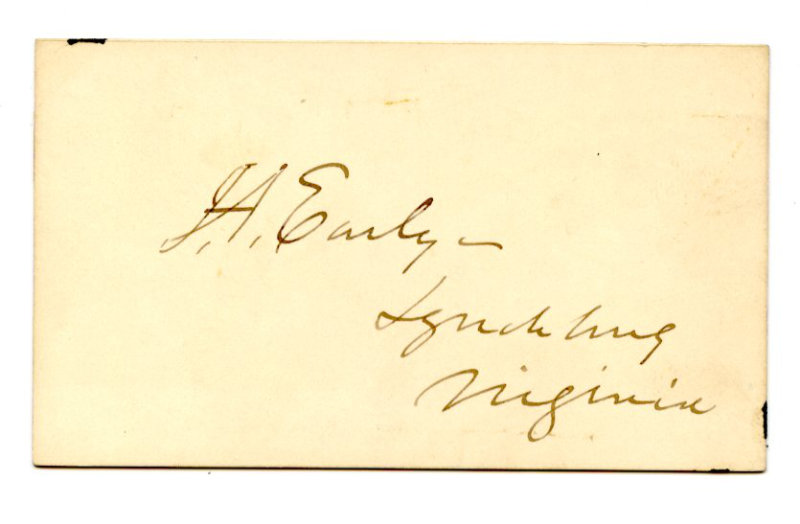 J. A. Early –
Lynchburg
Virginia